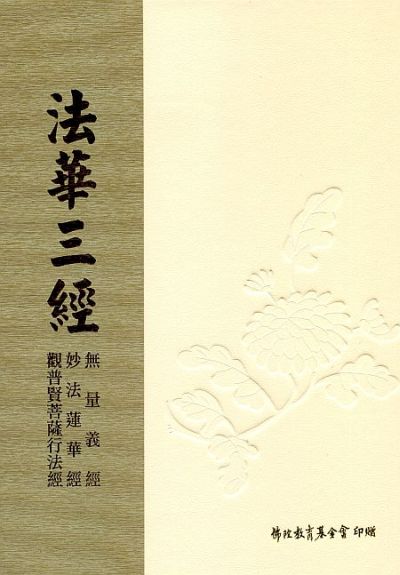 法華三經
無量義經
妙法蓮華經
觀普賢菩薩行法經
佛陀教育基金會 印贈